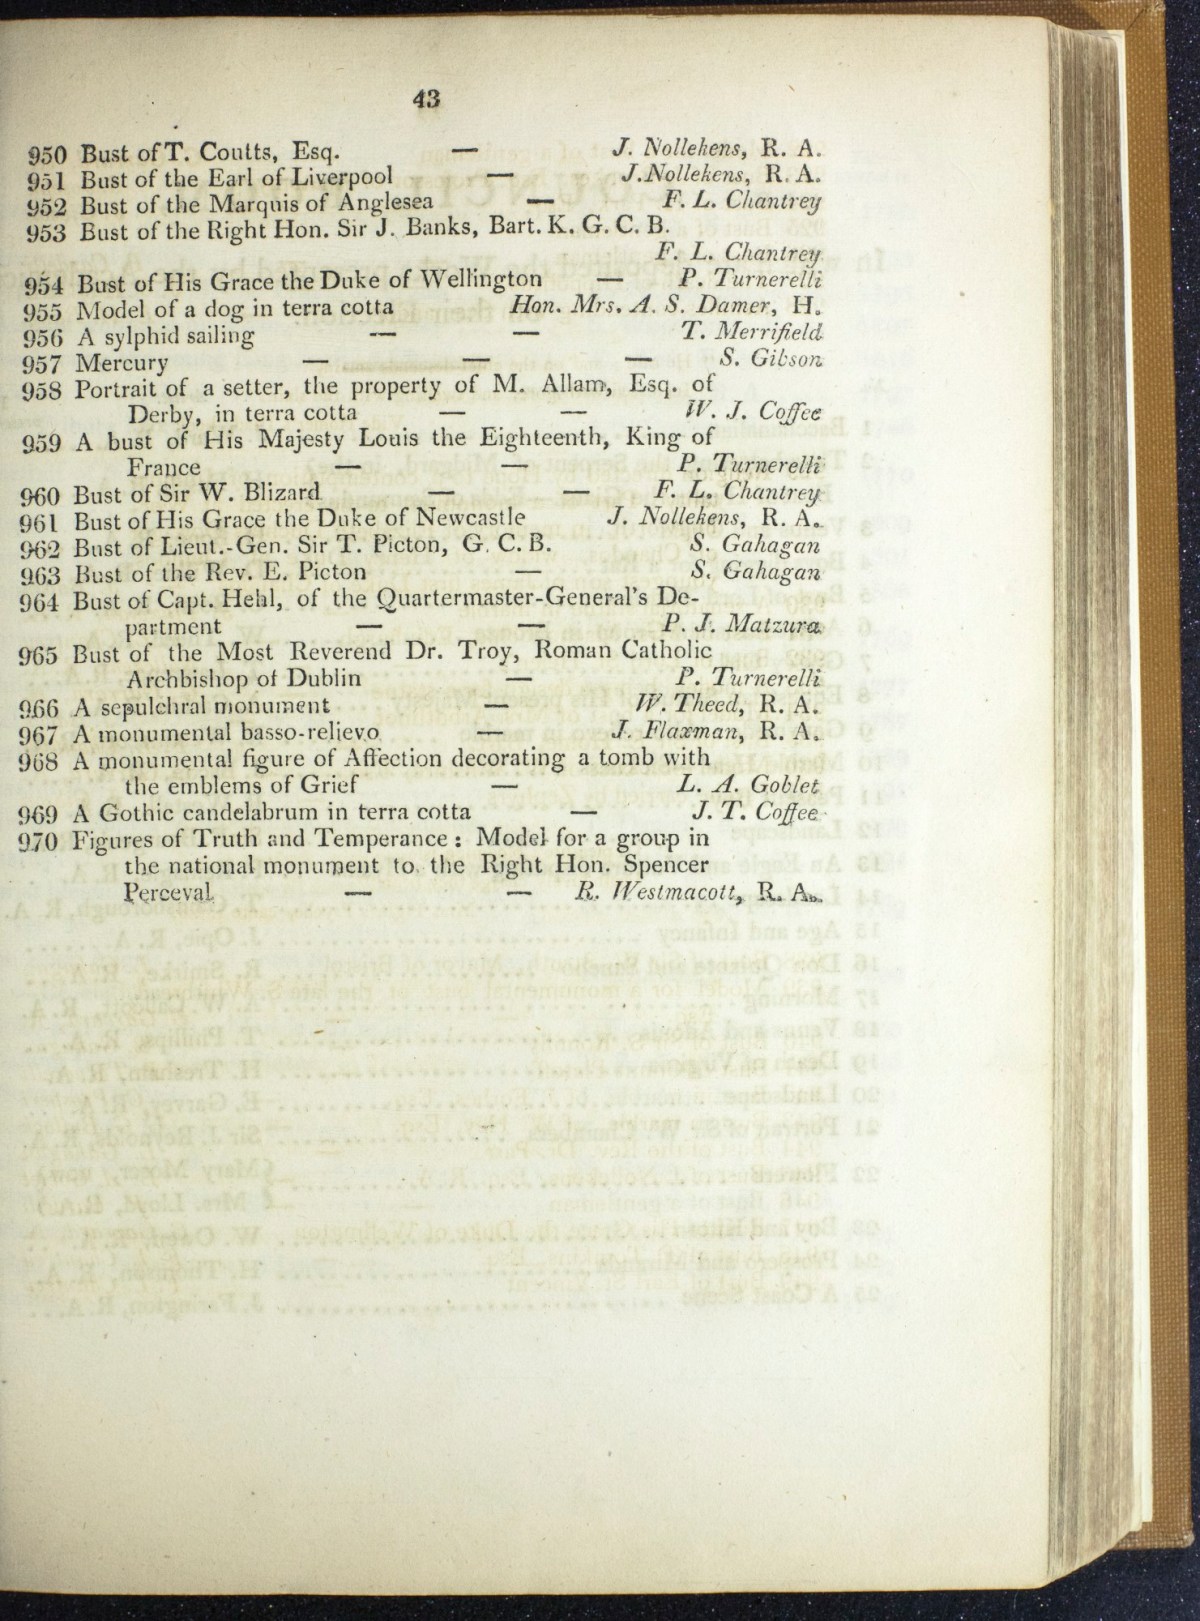 43
950 Bust of T. Coutts, Esq. — J. Nollekens, R. A.
951 Bust of the Earl of Liverpool — J. Nollekens, R. A.
952 Bust of the Marquis of Anglesea — F. L. Chantrey
953 Bust of the Right Hon. Sir J. Banks, Bart. K. G. C. B.
F. L. Chantrey
954 Bust of His Grace the Duke of Wellington — P. Turnerelli
955 Model of a dog in terra cotta Hon. Mrs. A. S. Damer, H.
956 A sylphid sailing — — T. Merrifield
957 Mercury — — — S. Gibson
958 Portrait of a setter, the property of M. Allam, Esq. of
Derby, in terra cotta — — W. J. Coffee
959 A bust of His Majesty Louis the Eighteenth, King of
France — — P. Turnerelli
960 Bust of Sir W. Blizard — — F. L. Chantrey
961 Bust of His Grace the Duke of Newcastle J. Nollekens, R. A.
962 Bust of Lieut.-Gen. Sir T. Picton, G. C. B. S. Gahagan
963 Bust of the Rev. E. Picton — S. Gahagan
964 Bust of Capt. Hehl, of the Quartermaster-General's De-
partment — — P. J. Matzura
965 Bust of the Most Reverend Dr. Troy, Roman Catholic
Archbishop of Dublin — P. Turnerelli
966 A sepulchral monument — W. Theed, R. A.
967 A monumental basso-relievo — J. Flaxman, R. A.
968 A monumental figure of Affection decorating a tomb with
the emblems of Grief — L. A. Goblet
969 A Gothic candelabrum in terra cotta — J. T. Coffee
970 Figures of Truth and Temperance : Model for a group in
the national monument to the Right Hon. Spencer
Perceval — — R. Westmacott, R. A.